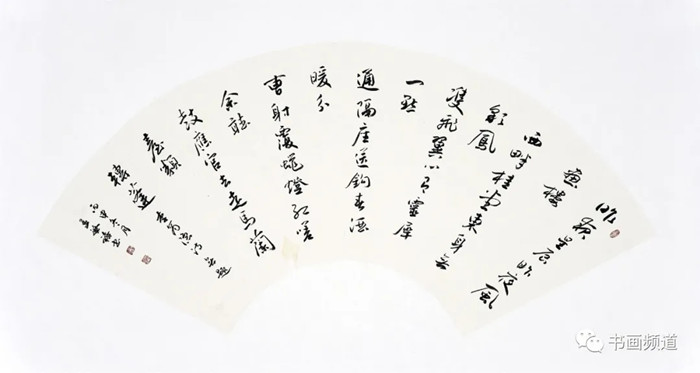 昨夜星辰昨夜風
畫樓
西畔桂堂東身無
彩鳳
雙飛翼心有靈犀
一點
通隔座送鈎春酒
暖分
曹射覆蠟燈紅嗟
余聽
鼓應官去走馬蘭
臺類
轉蓬 李商隱詩無題
丙申
書
书画频道